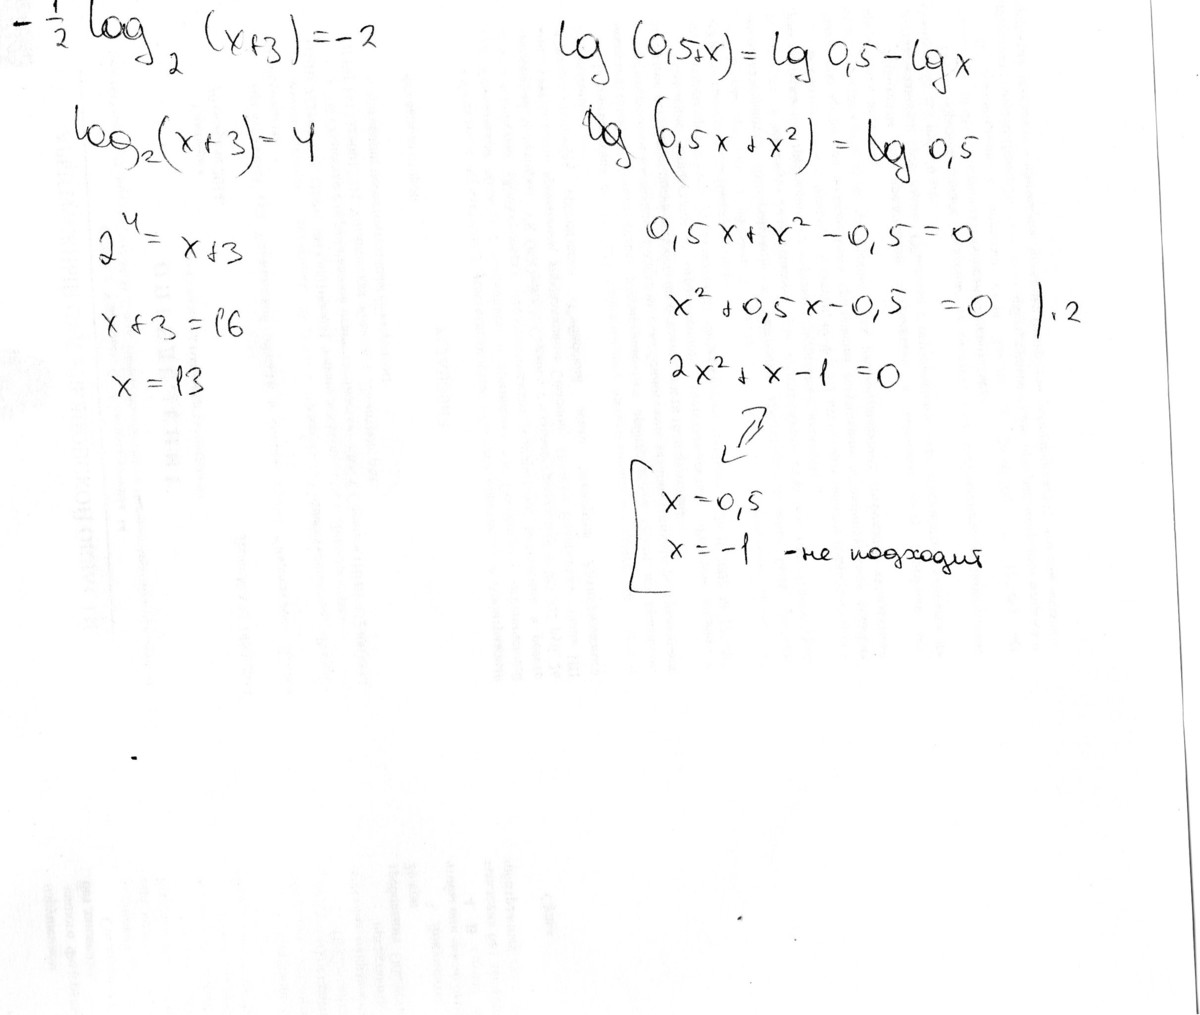 -1/2 log₂ (x+3) = -2
log₂(x+3) = 4
2⁴ = x+3
x+3 = 16
x = 13
lg (0,5+x) = lg 0,5 - lg x
lg (0,5x + x²) = lg 0,5
0,5x + x² - 0,5 = 0
x² + 0,5x - 0,5 = 0 | · 2
2x² + x - 1 = 0
x = 0,5
x = -1 - не подходит